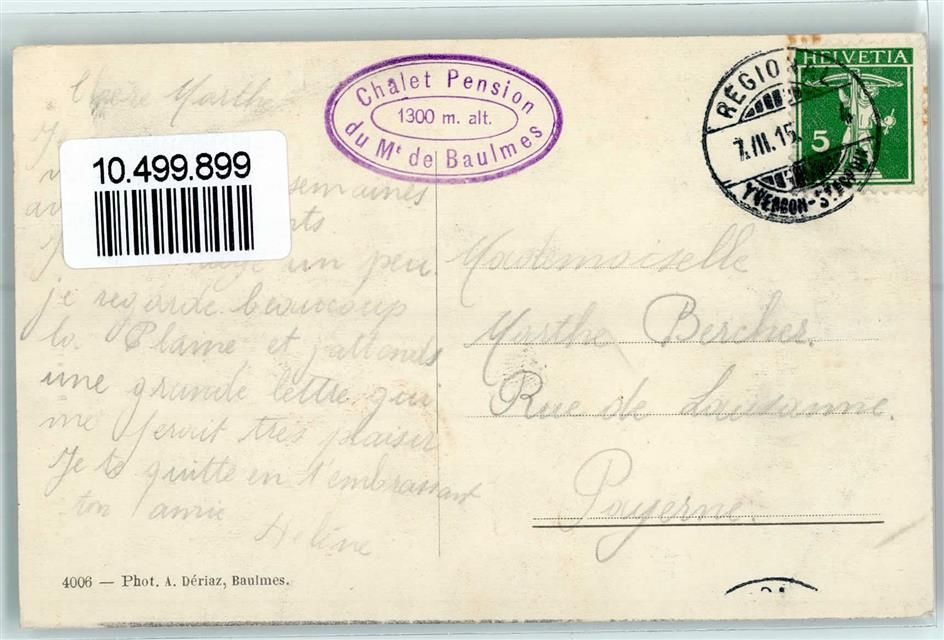 Chère Marthe
Je
semaines
un peu.
je regarde beaucoup
la Plaine et j'attends
une grande lettre qui
me ferait très plaisir
Je te quitte en t'embrassant
ton amie
Hélène
4006 — Phot. A. Dériaz, Baulmes.
10.499.899
Chalet Pension
1300 m. alt.
du Mt de Baulmes
HELVETIA
5
REGIONAL
7.III.15
YVERDON-STE CROIX
Mademoiselle
Marthe Bercher.
Rue de Lausanne.
Payerne.